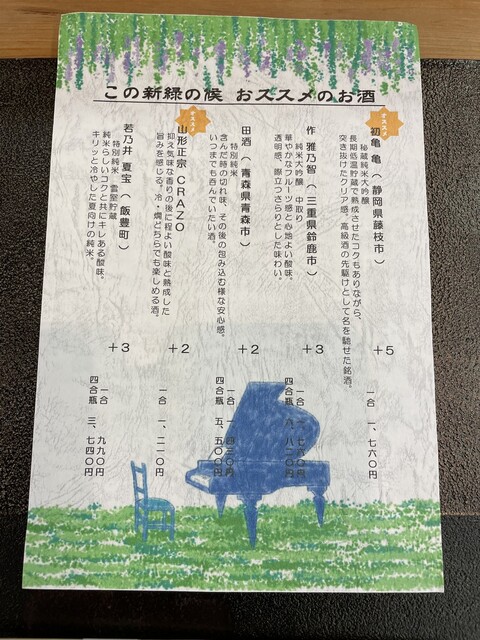 この新緑の候 おススメのお酒
オススメ
初亀 亀 (静岡県藤枝市)
秘蔵純米大吟醸
長期低温貯蔵で熟成させたコクもありながら、
突き抜けたクリア感。高級酒の先駆けとして名を馳せた銘酒。
+5
一合 一、七六〇円
作 雅乃智 (三重県鈴鹿市)
純米大吟醸 中取り
華やかなフルーツ感と心地よい酸味。
透明感、際立つさらりとした味わい。
+3
一合 一、七六〇円
四合瓶 八二〇円
田酒 (青森県青森市)
特別純米
含んだ時の切れ味、その後の包み込む様な安心感。
いつまでも呑んでいたい酒。
+2
一合 一、四三〇円
四合瓶 五、五〇〇円
オススメ
山形正宗 CRAZO
抑え気味な香りの後に程よい酸味と熟成した
旨みを感じる。冷・燗どちらでも楽しめる酒。
+2
一合 一、二一〇円
若乃井 夏宝 (飯豊町)
特別純米 雪室貯蔵
純米らしいコクと共にキレある酸味。
キリッと冷やした夏向けの純米。
+3
一合 九九〇円
四合瓶 三、七四〇円